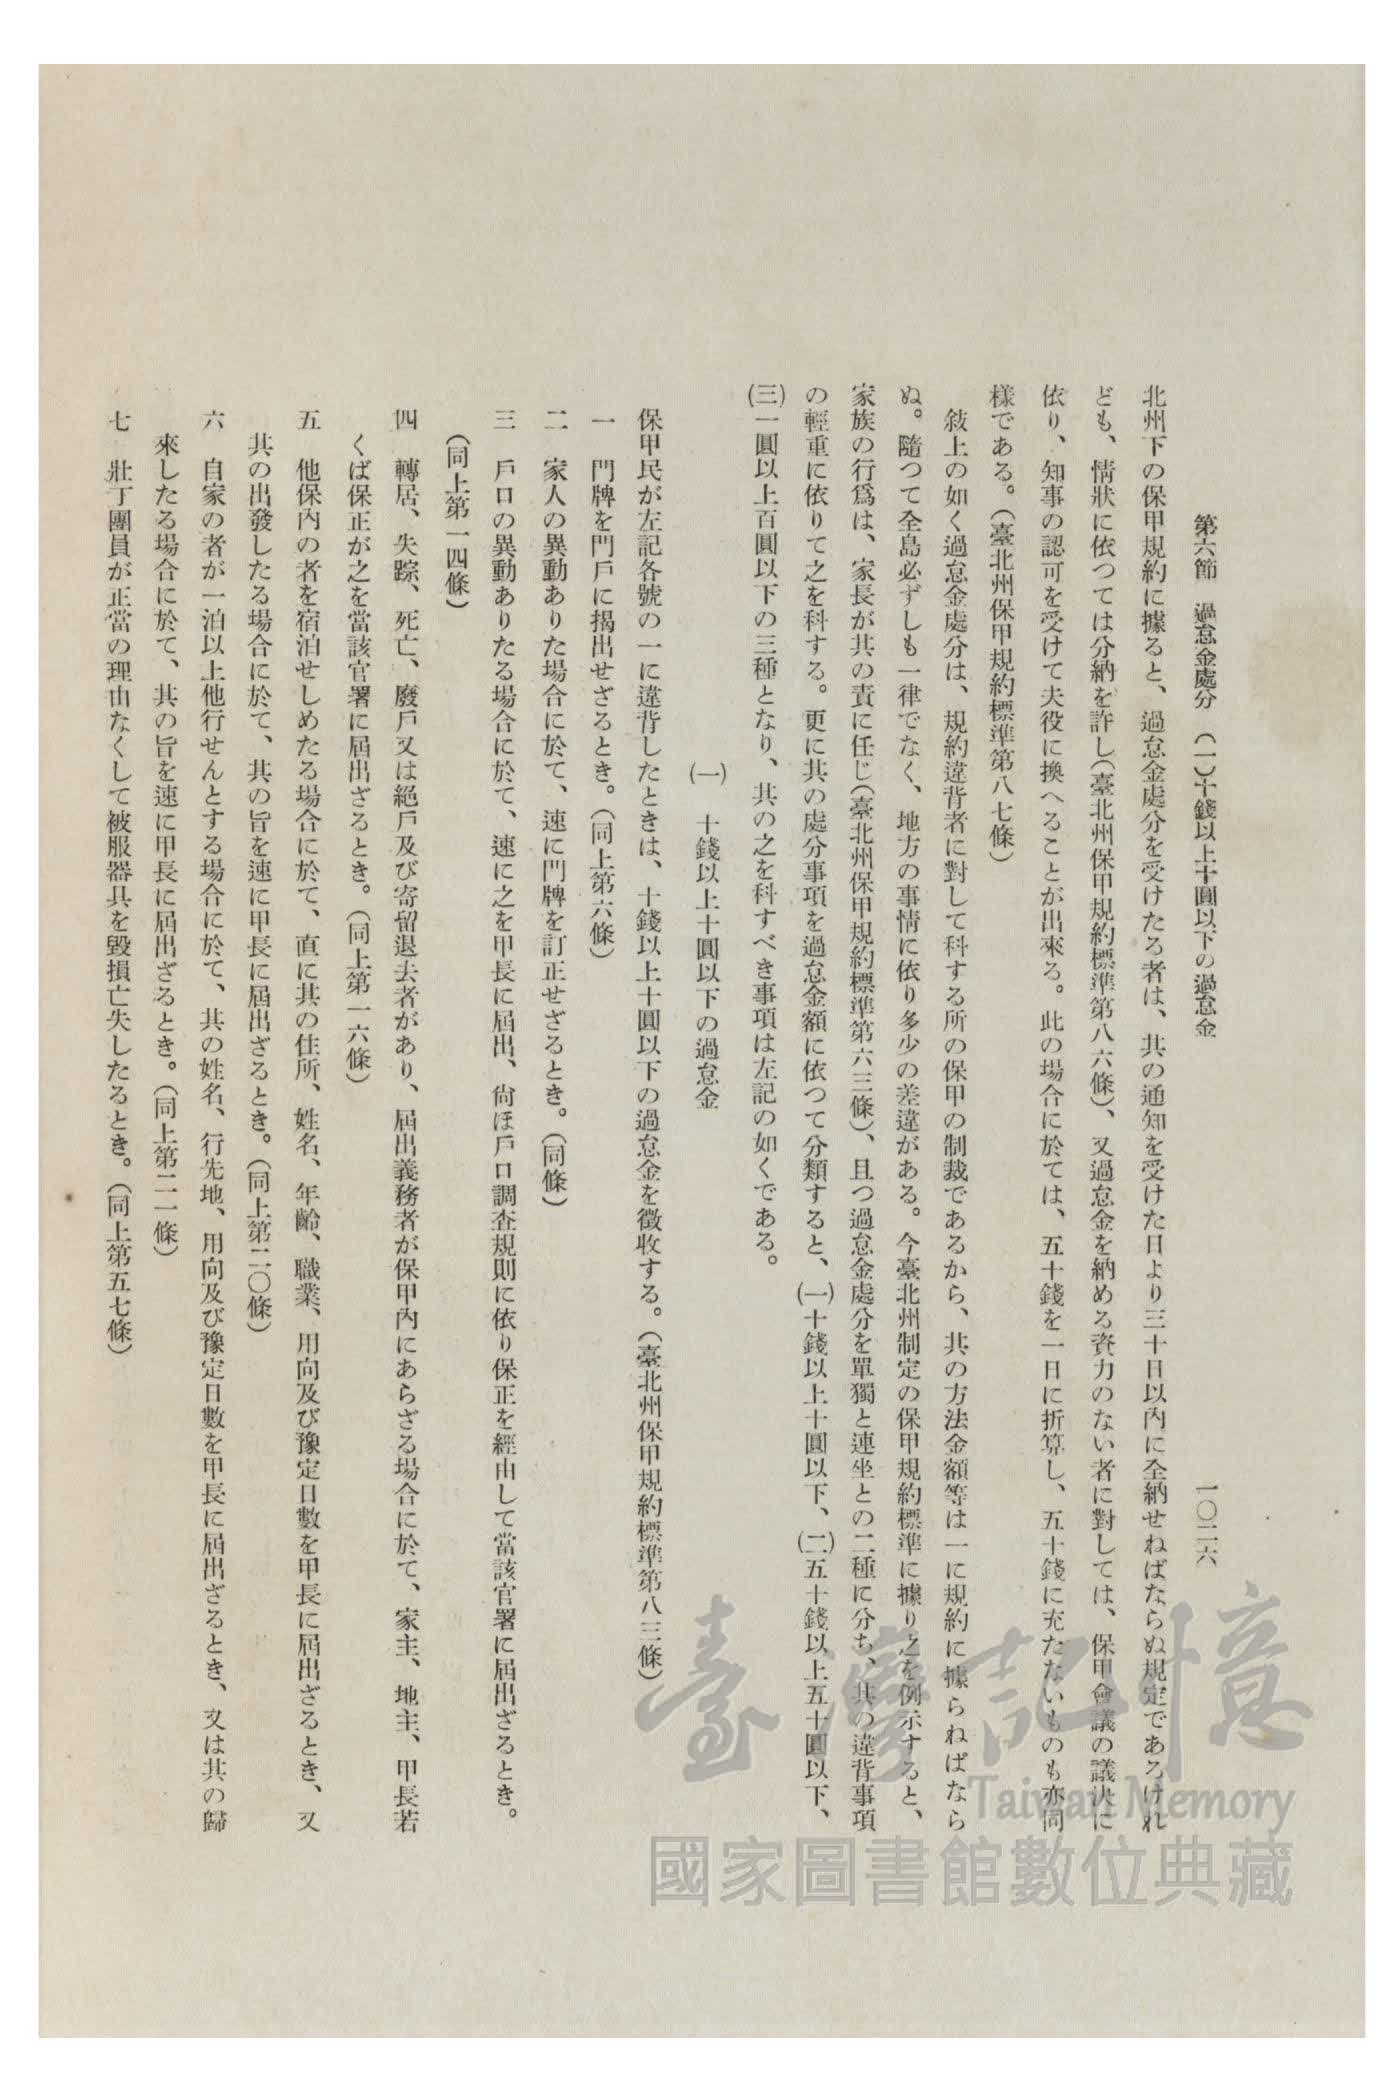 第六節　過怠金處分　(一)十錢以上十圓以下の過怠金　一〇二六
北州下の保甲規約に據ると、過怠金處分を受けたる者は、其の通知を受けた日より三十日以内に全納せねばならぬ規定であるけれ
ども、情狀に依つては分納を許し(臺北州保甲規約標準第八六條)、又過怠金を納める資力のない者に對しては、保甲會議の議決に
依り、知事の認可を受けて夫役に換へることが出來る。此の場合に於ては、五十錢を一日に折算し、五十錢に充たないものも亦同
樣である。(臺北州保甲規約標準第八七條)
敍上の如く過怠金處分は、規約違背者に對して科する所の保甲の制裁であるから、其の方法金額等は一に規約に據らねばなら
ぬ。隨つて全島必ずしも一律でなく、地方の事情に依り多少の差違がある。今臺北州制定の保甲規約標準に據り之を例示すると、
家族の行爲は、家長が其の責に任じ(臺北州保甲規約標準第六三條)、且つ過怠金處分を單獨と連坐との二種に分ち、其の違背事項
の輕重に依りて之を科する。更に其の處分事項を過怠金額に依つて分類すると、(一)十錢以上十圓以下、(二)五十錢以上五十圓以下、
(三)一圓以上百圓以下の三種となり、其の之を科すべき事項は左記の如くである。
(一)　十錢以上十圓以下の過怠金
保甲民が左記各號の一に違背したときは、十錢以上十圓以下の過怠金を徵收する。(臺北州保甲規約標準第八三條)
一　門牌を門戶に揭出せざるとき。(同上第六條)
二　家人の異動ありた場合に於て、速に門牌を訂正せざるとき。(同條)
三　戶口の異動ありたる場合に於て、速に之を甲長に屆出、尙ほ戶口調査規則に依り保正を經由して當該官署に屆出ざるとき。
(同上第一四條)
四　轉居、失踪、死亡、廢戶又は絕戶及び寄留退去者があり、屆出義務者が保甲內にあらざる場合に於て、家主、地主、甲長若
くば保正が之を當該官署に屆出ざるとき。(同上第一六條)
五　他保內の者を宿泊せしめたる場合に於て、直に其の住所、姓名、年齡、職業、用向及び豫定日數を甲長に屆出ざるとき、又
其の出發したる場合に於て、其の旨を速に甲長に屆出ざるとき。(同上第二〇條)
六　自家の者が一泊以上他行せんとする場合に於て、其の姓名、行先地、用向及び豫定日數を甲長に屆出ざるとき、又は其の歸
來したる場合に於て、其の旨を速に甲長に屆出ざるとき。(同上第二一條)
七　壯丁團員が正當の理由なくして被服器具を毀損亡失したるとき。(同上第五七條)
臺灣記憶
Taiwan Memory
國家圖書館數位典藏